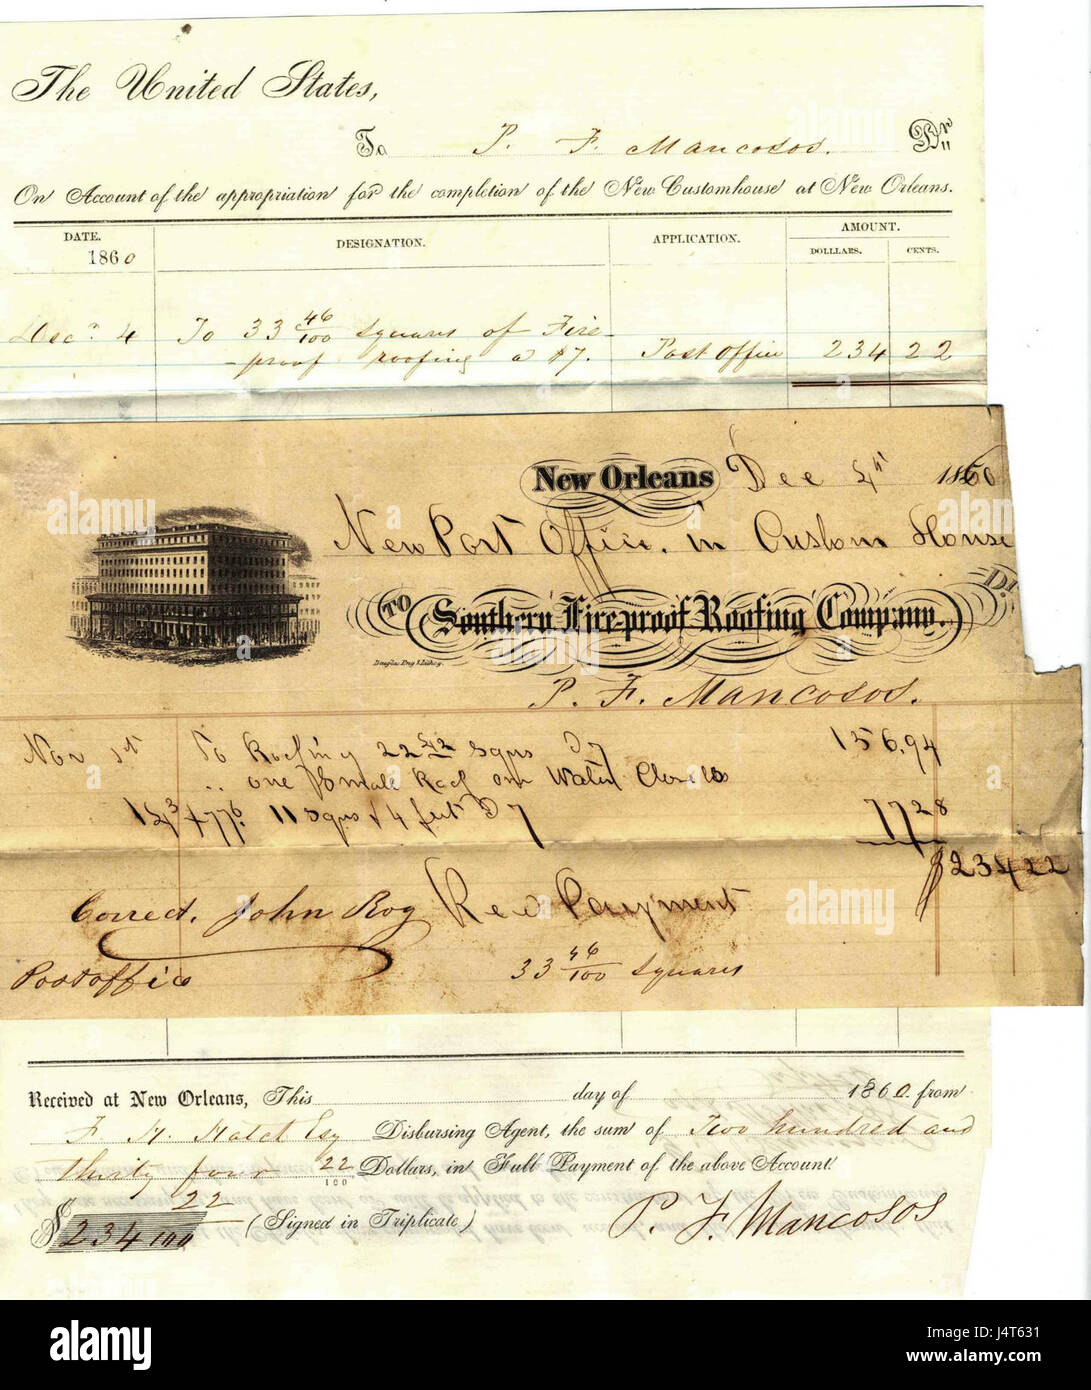 The United States,
To P. F. Mancosos. Dr
On Account of the appropriation for the completion of the New Customhouse at New Orleans.
DATE. DESIGNATION. APPLICATION. AMOUNT.
1860 DOLLLARS. CENTS.
Decr 4 To 33 46/100 squares of Fire-
-proof roofing a $7. Post office 234 22
New Orleans Dec 4th 1860
New Post Office. in Custom House
TO Southern Fireproof Roofing Company. Dr
Douglas Eng & Lithog.
P. F. Mancosos.
Nov 1st To Roofing 22 42 Sqrs 7 156.94
one small Roof on Water Closets
11 Sqrs & 4 feet 7 77 28
$234 22
Correct. John Roy Rec Payment
Postoffice 33 46/100 squares
Received at New Orleans, This day of 1860. from
F. H. Hatch Esq Disbursing Agent, the sum of Two hundred and
thirty four 22/100 Dollars, in Full Payment of the above Account.
$234 22/100 (Signed in Triplicate) P. F. Mancosos
alamy
Image ID: J4T631
www.alamy.com